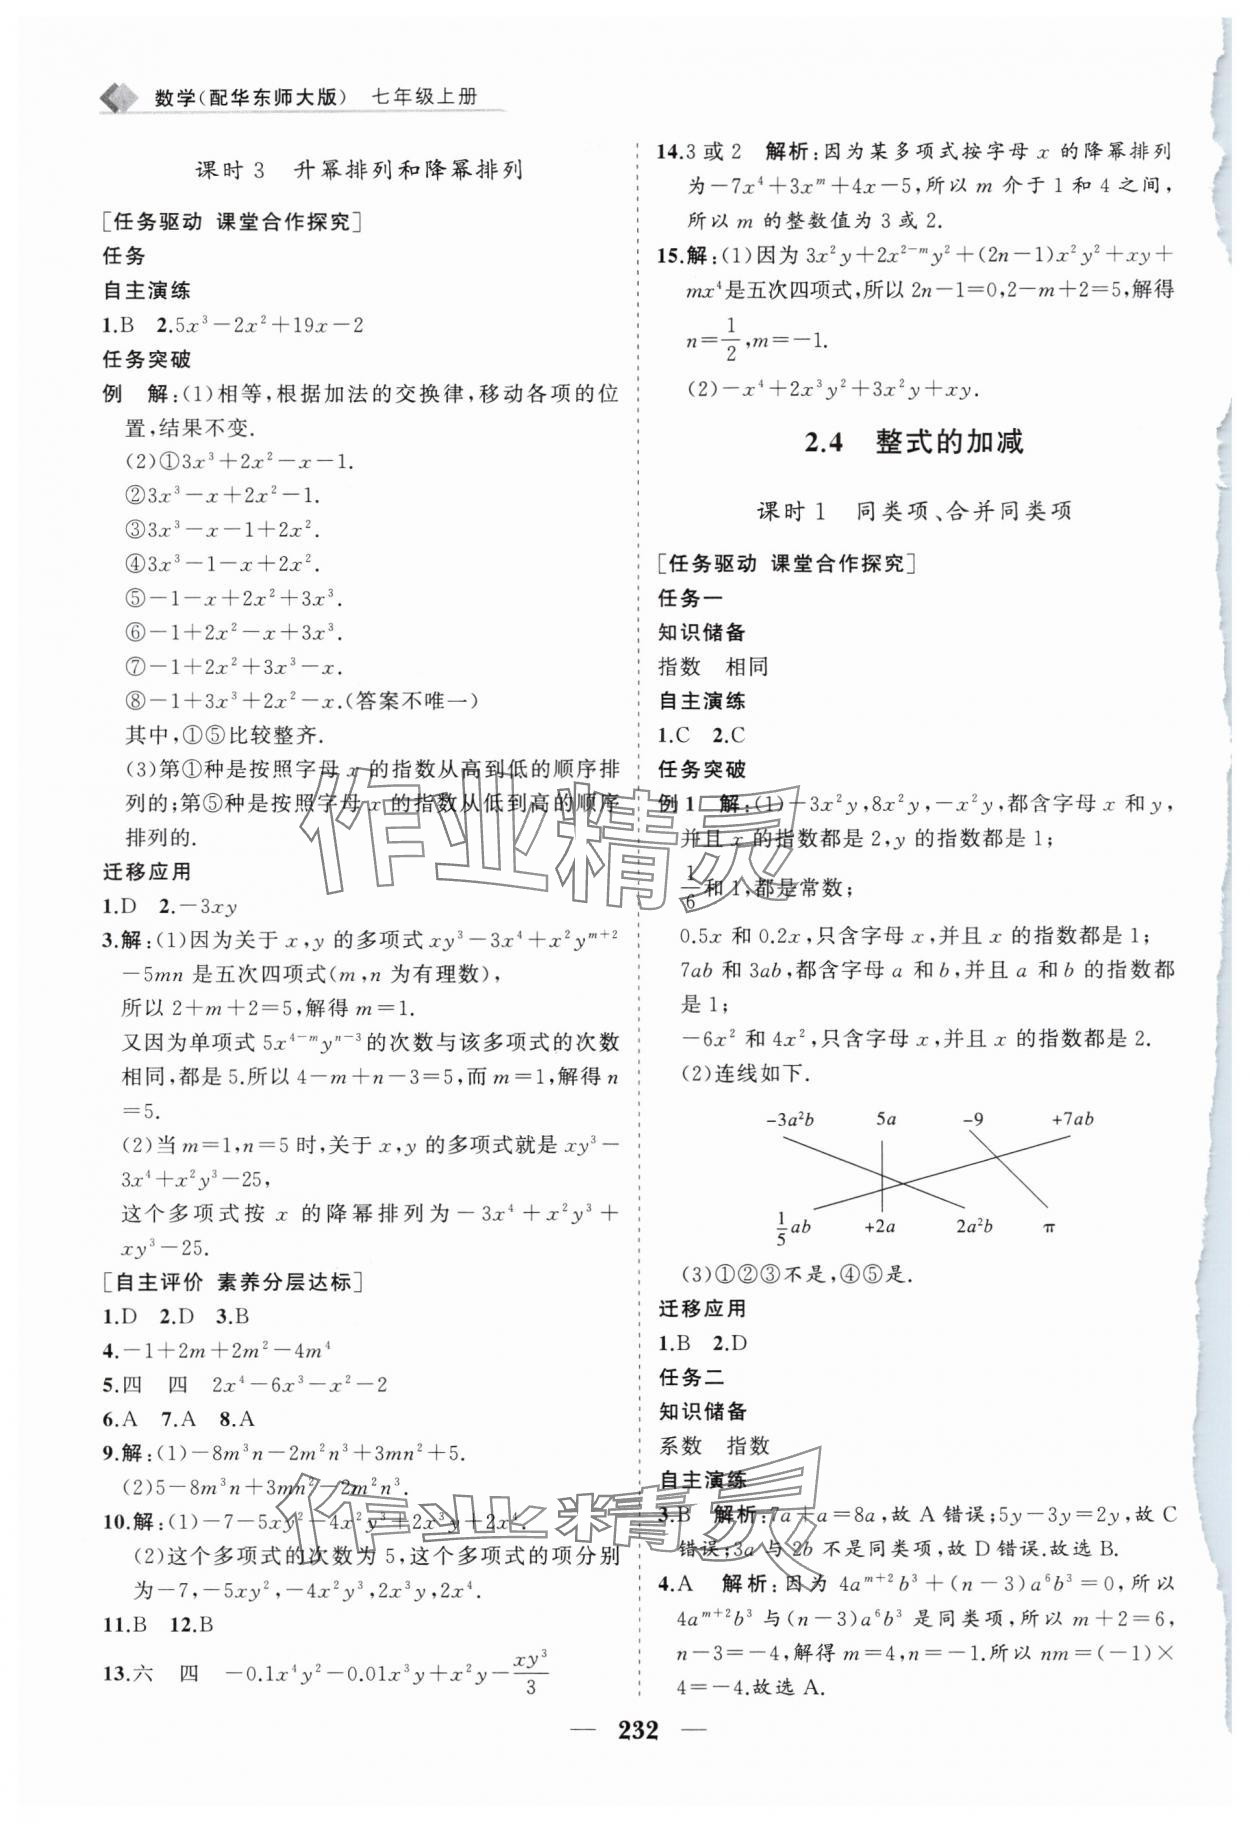 数学(配华东师大版) 七年级上册
课时3 升幂排列和降幂排列
[任务驱动 课堂合作探究]
任务
自主演练
1.B 2.5x³－2x²＋19x－2
任务突破
例 解:(1)相等,根据加法的交换律,移动各项的位
置,结果不变.
(2)①3x³＋2x²－x－1.
②3x³－x＋2x²－1.
③3x³－x－1＋2x².
④3x³－1－x＋2x².
⑤－1－x＋2x²＋3x³.
⑥－1＋2x²－x＋3x³.
⑦－1＋2x²＋3x³－x.
⑧－1＋3x³＋2x²－x.(答案不唯一)
其中,①⑤比较整齐.
(3)第①种是按照字母 x 的指数从高到低的顺序排
列的;第⑤种是按照字母 x 的指数从低到高的顺序
排列的.
迁移应用
1.D 2.－3xy
3.解:(1)因为关于 x,y 的多项式 xy³－3x⁴＋x²yᵐ⁺²
－5mn 是五次四项式(m,n 为有理数),
所以 2＋m＋2＝5,解得 m＝1.
又因为单项式 5x⁴⁻ᵐyⁿ⁻³的次数与该多项式的次数
相同,都是 5.所以 4－m＋n－3＝5,而 m＝1,解得 n
＝5.
(2)当 m＝1,n＝5 时,关于 x,y 的多项式就是 xy³－
3x⁴＋x²y³－25,
这个多项式按 x 的降幂排列为－3x⁴＋x²y³＋
xy³－25.
[自主评价 素养分层达标]
1.D 2.D 3.B
4.－1＋2m＋2m²－4m⁴
5.四 四 2x⁴－6x³－x²－2
6.A 7.A 8.A
9.解:(1)－8m³n－2m²n³＋3mn²＋5.
(2)5－8m³n＋3mn²－2m²n³.
10.解:(1)－7－5xy²－4x²y³＋2x³y＋2x⁴.
(2)这个多项式的次数为 5,这个多项式的项分别
为－7,－5xy²,－4x²y³,2x³y,2x⁴.
11.B 12.B
13.六 四 －0.1x⁴y²－0.01x³y＋x²y－xy³/3
14.3 或 2 解析:因为某多项式按字母 x 的降幂排列
为－7x⁴＋3xᵐ＋4x－5,所以 m 介于 1 和 4 之间,
所以 m 的整数值为 3 或 2.
15.解:(1)因为 3x²y＋2x²⁻ᵐy²＋(2n－1)x²y²＋xy＋
mx⁴是五次四项式,所以 2n－1＝0,2－m＋2＝5,解得
n＝1/2,m＝－1.
(2)－x⁴＋2x³y²＋3x²y＋xy.
2.4 整式的加减
课时1 同类项、合并同类项
[任务驱动 课堂合作探究]
任务一
知识储备
指数 相同
自主演练
1.C 2.C
任务突破
例1 解:(1)－3x²y,8x²y,－x²y,都含字母 x 和 y,
并且 x 的指数都是 2,y 的指数都是 1;
1/6和 1,都是常数;
0.5x 和 0.2x,只含字母 x,并且 x 的指数都是 1;
7ab 和 3ab,都含字母 a 和 b,并且 a 和 b 的指数都
是 1;
－6x² 和 4x²,只含字母 x,并且 x 的指数都是 2.
(2)连线如下.
-3a²b 5a -9 +7ab
1/5ab +2a 2a²b π
(3)①②③不是,④⑤是.
迁移应用
1.B 2.D
任务二
知识储备
系数 指数
自主演练
3.B 解析:7a＋a＝8a,故 A 错误;5y－3y＝2y,故 C
错误;3a 与 2b 不是同类项,故 D 错误.故选 B.
4.A 解析:因为 4aᵐ⁺²b³＋(n－3)a⁶b³＝0,所以
4aᵐ⁺²b³ 与(n－3)a⁶b³ 是同类项,所以 m＋2＝6,
n－3＝－4,解得 m＝4,n＝－1.所以 nm＝(－1)×
4＝－4.故选 A.
— 232 —
作业精灵
作业精灵